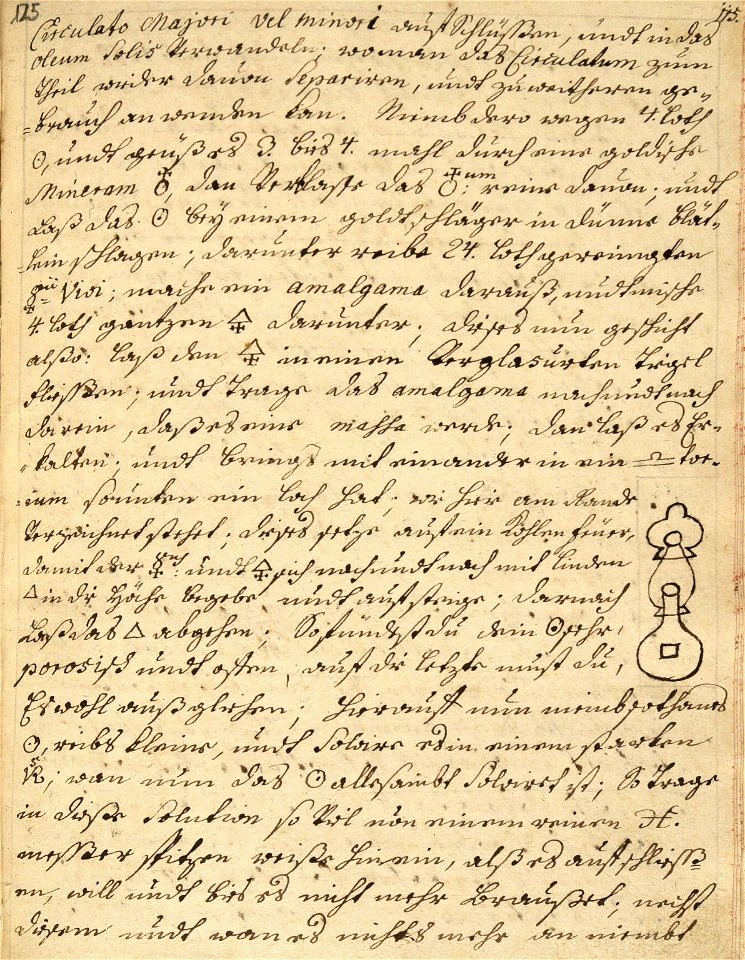 125
175.
Circulato Majori vel minori aufschlüssen, undt in das
oleum Solis Verwandeln; wo man das Circulatum zum
theil wider dauon Separiren, undt zu weitheren ge-
-brauch anwenden kan. Nimb dero wegen 4. loth
☉, undt geüß es 3. bis 4. mahl durch eine goldische
Mineram ♁, dan Verblasse das ♁um: reine dauon; undt
Laß das ☉ bey einem goldtschläger in dünne blät-
-lein schlagen; darunter reibe 24. loth gereinigten
☿ii Vivi; mache ein amalgama darauß, undt mische
4. loth gantzen 🜍 darunter; dises nun geschicht
also: laß den 🜍 in einen Verglasurten Tigel
fliessen; undt trage das amalgama nach undt nach
darein, daß es eine massa werde; dan laß es Er-
-kalten; undt brings mit einander in ein
unten ein loch hat; wie hier am Rande
Verzeichnet stehet; dises setze auf ein Kohlen feüer,
damit der ☿ undt 🜍 sich nach undt nach mit linden
🜂 in die Höhe begebe undt aufsteige; darnach
Laß das 🜂 abgehen; So findest du dein ☉ sehr
porosisch undt offen, auf die letzte must du
Es wohl außgliehen; hierauf nun nimb
☉, reibs kleine, undt Solvire es in einem starken
; wan nun das ☉ allesambt Solviret ist; So trage
in disse Solution so Vil von einem reinen
messer spitzen weiße hinein, alß es aufschliess-
en, will undt bis es nicht mehr Braußet; nechst
disem undt wan es nichts mehr an nimbt